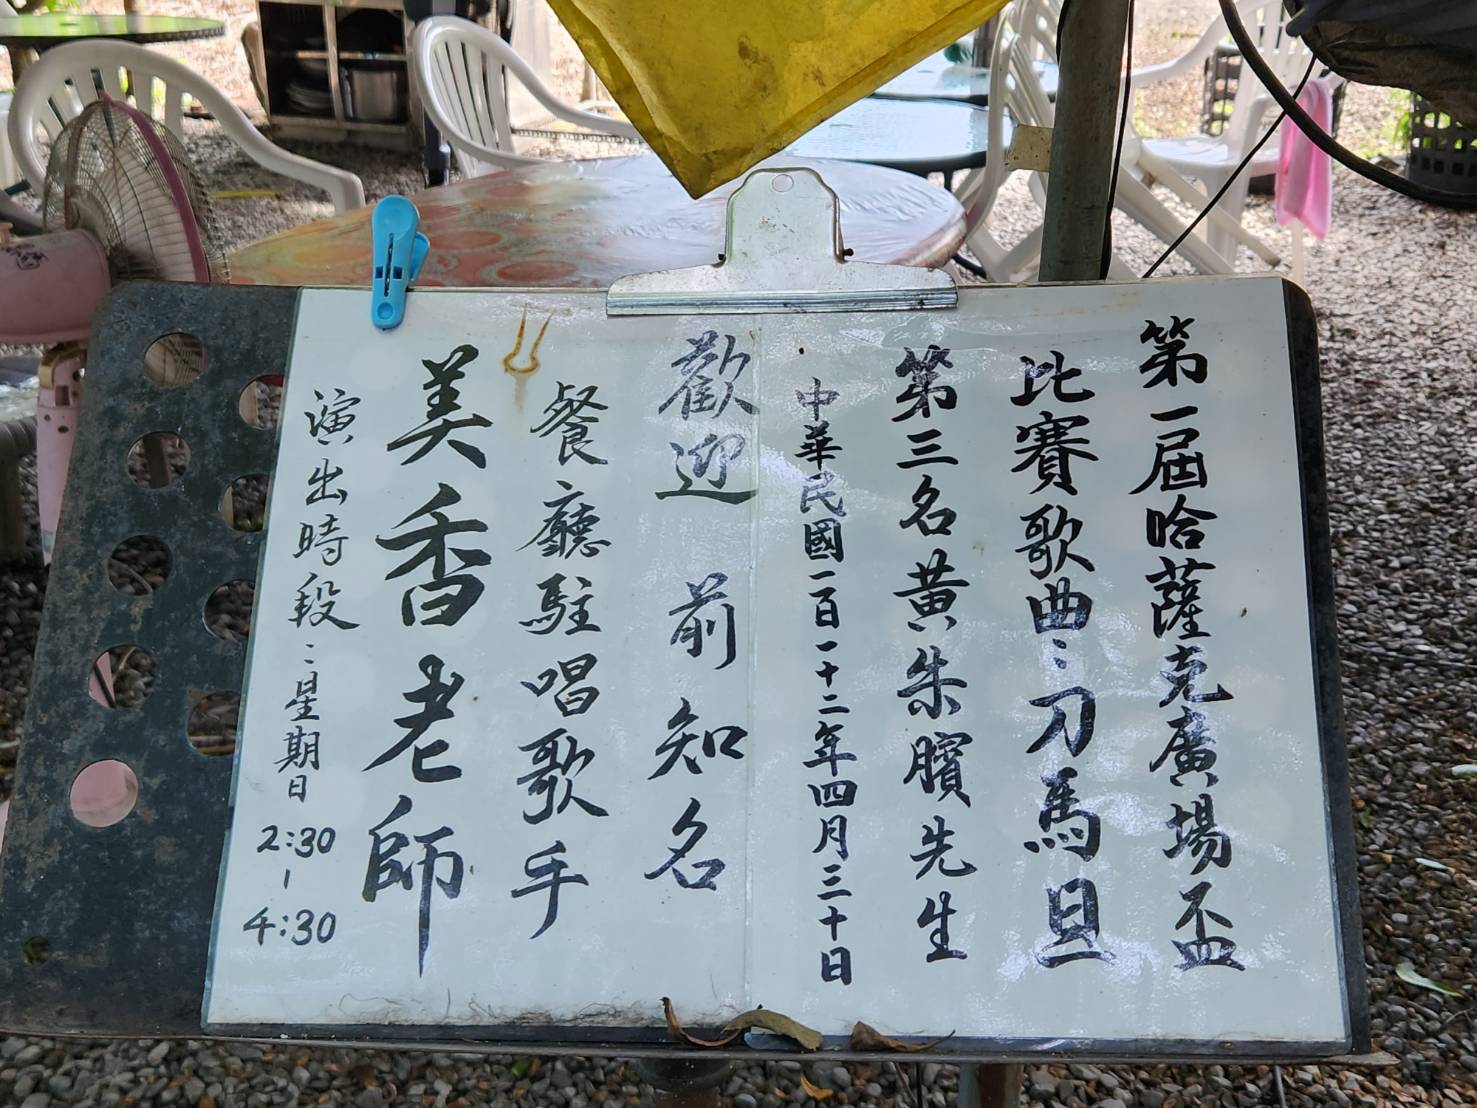 第一屆哈薩克廣場盃
比賽歌曲：刀馬旦
第三名黃朱臏先生
中華民國一百一十二年四月三十日
歡迎 前知名
餐廳駐唱歌手
美香老師
演出時段：星期日
2:30
-
4:30